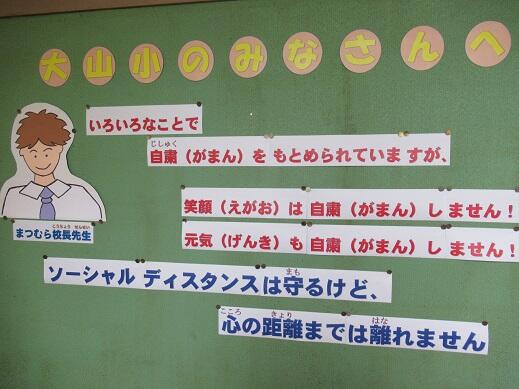 大山小のみなさんへ
いろいろなことで
じしゅく
自粛（がまん）をもとめられていますが、
笑顔（えがお）は自粛（がまん）しません！
元気（げんき）も自粛（がまん）しません！
こうちょう せんせい
まつむら校長先生
まも
ソーシャルディスタンスは守るけど、
こころ きょり はな
心の距離までは離れません